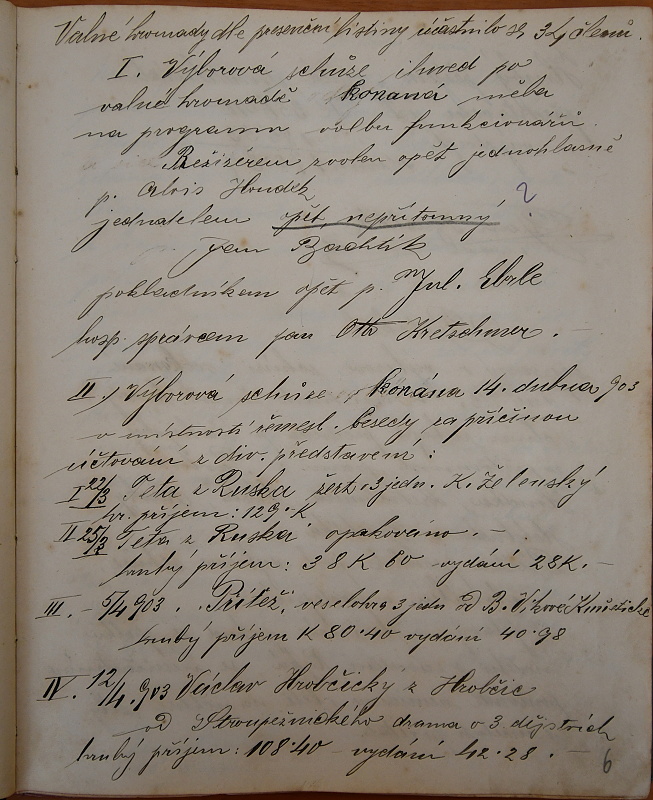 Valné hromady dle presenční listiny účastnilo se 34 členů.
I. Výborová schůze ihned po
valné hromadě konaná měla
na programu volbu funkcionářů.
Režisérem zvolen opět jednohlasně
p. Alois Houdek
jednatelem opět, nepřítomný ?
pan Bachlík
pokladníkem opět p. Jul. Eberle
hosp. správcem pan Otto Kretschmer. –
II.) Výborová schůze konána 14. dubna 903
v místnosti řemesl. besedy za příčinou
účtování z div. představení:
I 22/3 Teta z Ruska žert. 3 jedn. K. Želenský
hr. příjem: 129. K
II 25/3 Teta z Ruska opakováno. –
hrubý příjem: 38 K 60 vydání 28 K. –
III. – 5/4 903. Přítež, veselohra 3 jedn. od B. Vikové Kunětické
hrubý příjem K 80.40 vydání 40.98
IV. 12/4. 903 Václav Hrobčický z Hrobčic
od Stroupežnického drama o 3 dějstvích
hrubý příjem: 108.40 – vydání 42.28. –
6